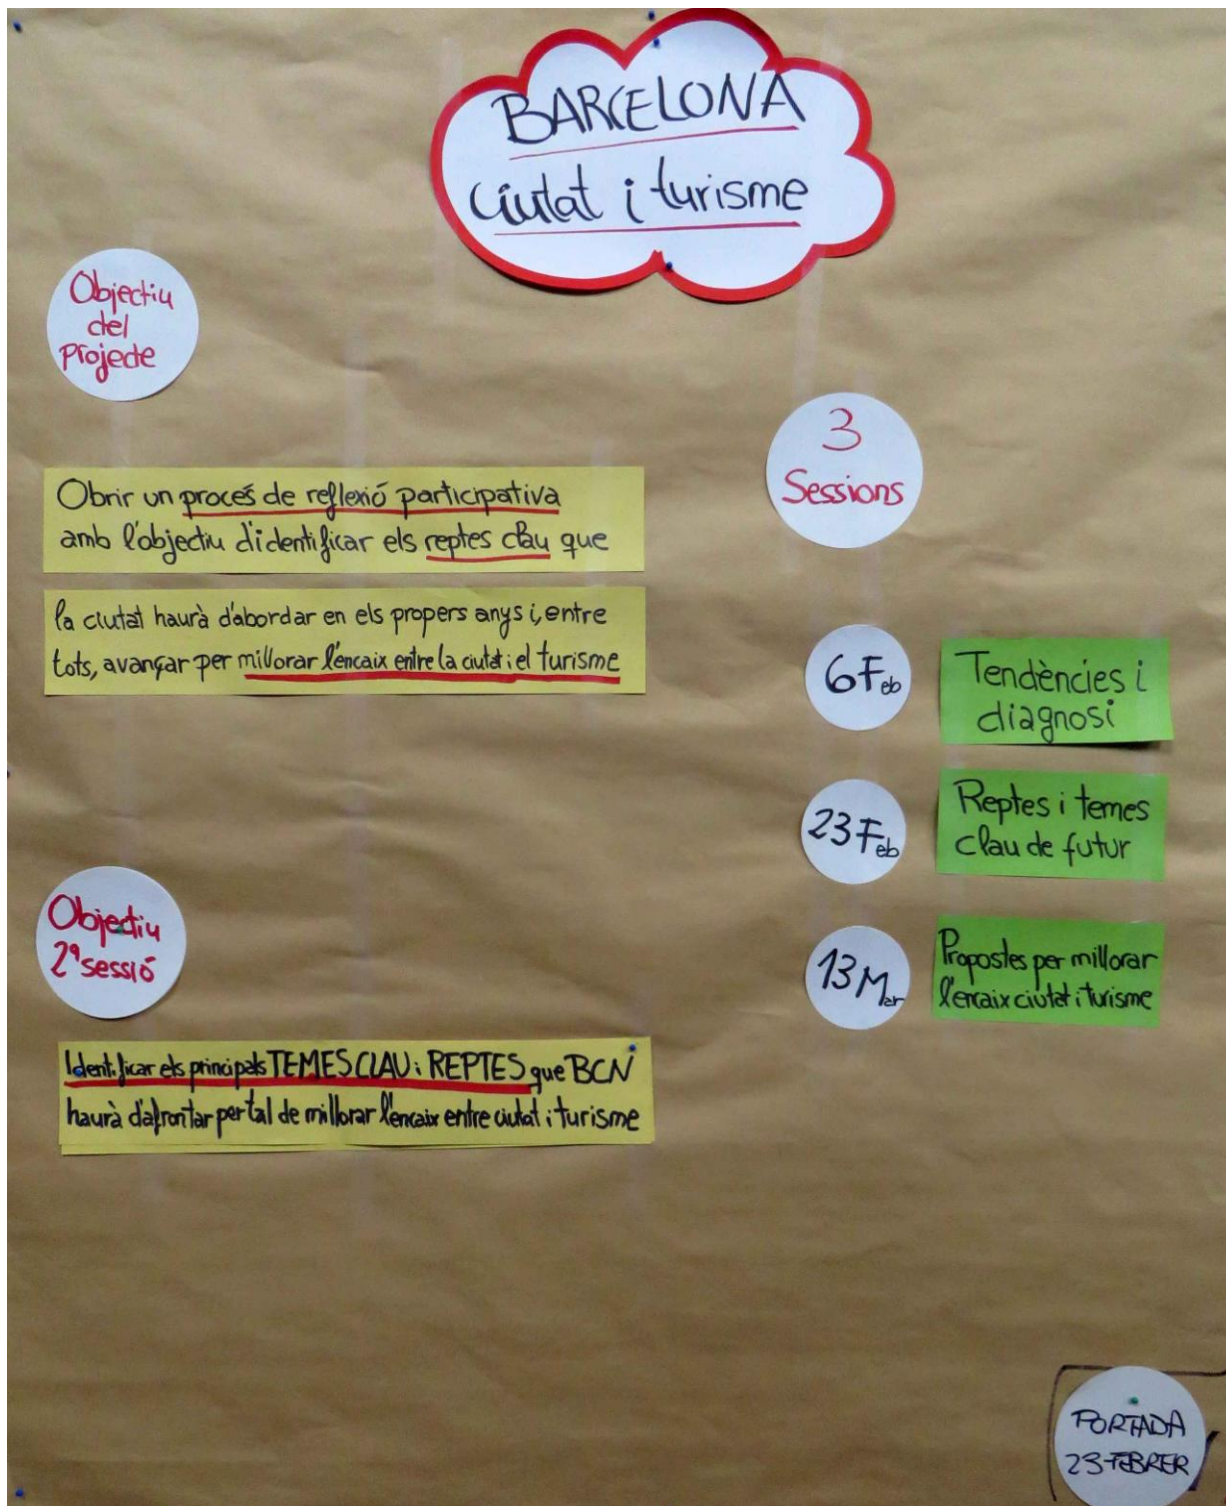 BARCELONA
Ciutat i turisme
Objectiu
del
projecte
Obrir un procés de reflexió participativa
amb l'objectiu d'identificar els reptes clau que
la ciutat haurà d'abordar en els propers anys i, entre
tots, avançar per millorar l'encaix entre la ciutat i el turisme
Objectiu
2ª sessió
Identificar els principals TEMES CLAU i REPTES que BCN
haurà d'afrontar per tal de millorar l'encaix entre ciutat i turisme
3
Sessions
6 Feb
Tendències i
diagnosi
23 Feb
Reptes i temes
clau de futur
13 Mar
Propostes per millorar
l'encaix ciutat i turisme
PORTADA
23 FEBRER